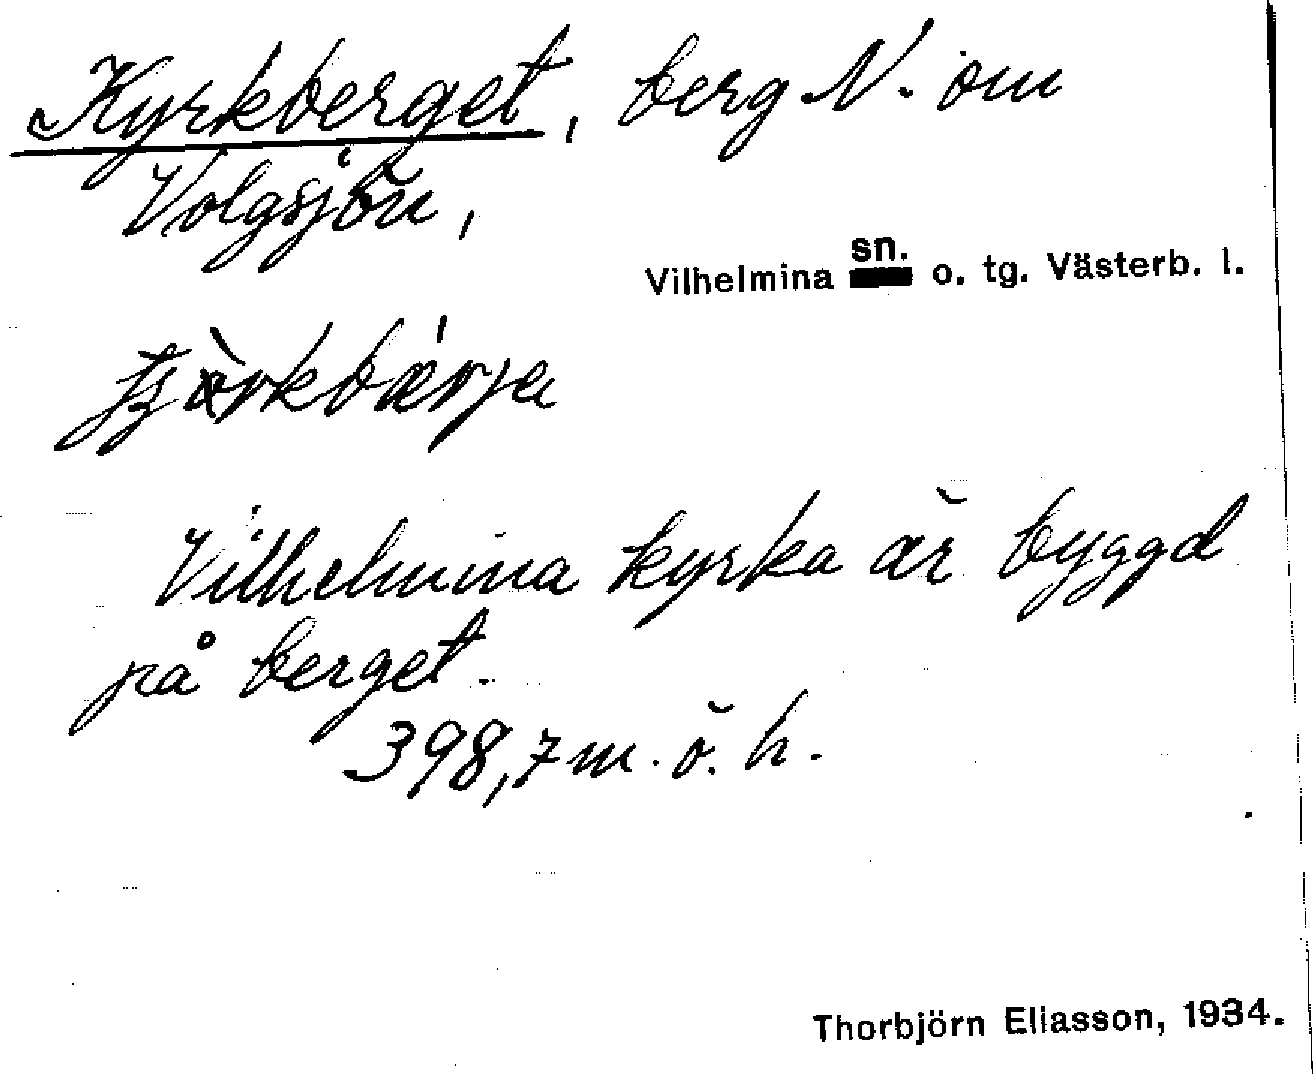 Kyrkberget, berg N. om
Volgsjön,
Vilhelmina sn. o. tg. Västerb. l.
Vilhelmina kyrka är byggd
på berget.
398,7 m. ö. h.
Thorbjörn Eliasson, 1934.